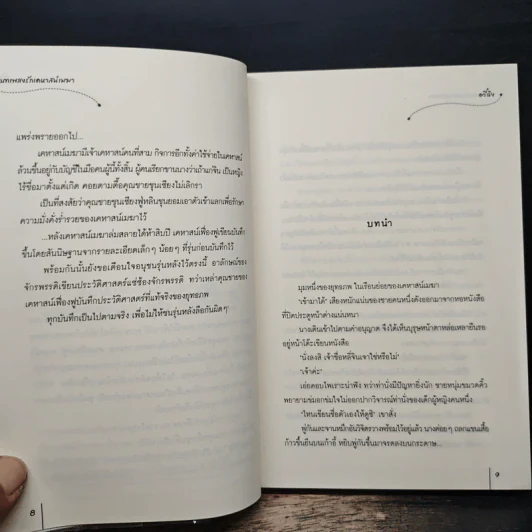 แพร่งพรายออกไป...
เคหาสน์เมฆามีเจ้าเคหาสน์คนที่สาม กิจการอีกทั้งค่าใช้จ่ายในเคหาสน์
ล้วนขึ้นอยู่กับบัญชีในมือคนผู้นี้ทั้งสิ้น ผู้คนเรียกขานนางว่าเถ้าแก่จิน เป็นหญิง
ไร้ชื่อมาตั้งแต่เกิด คอยตามตื๊อคุณชายชุนเชียงไม่เลิกรา
เป็นที่สงสัยว่าคุณชายชุนเชียงฟูหลินชุนยอมเอาตัวเข้าแลกเพื่อรักษา
ความมั่งคั่งร่ำรวยของเคหาสน์เมฆาไว้
...หลังเคหาสน์เมฆาล่มสลายได้ห้าสิบปี เคหาสน์เฟื่องฟูเขียนบันทึก
ขึ้นโดยสันนิษฐานจากรายละเอียดเล็กๆ น้อยๆ ที่รุ่นก่อนบันทึกไว้
พร้อมกันนั้นยังขอเตือนใจอนุชนรุ่นหลังไว้ตรงนี้ อาลักษณ์ของ
จักรพรรดิเขียนประวัติศาสตร์แซ่ซ้องจักรพรรดิ ทว่าเหล่าคุณชายของ
เคหาสน์เฟื่องฟูบันทึกประวัติศาสตร์ที่แท้จริงของยุทธภพ
ทุกบันทึกเป็นไปตามจริง เพื่อไม่ให้ชนรุ่นหลังลือกันผิดๆ
8
บทนำ
มุมหนึ่งของยุทธภพ ในเรือนย่อยของเคหาสน์เมฆา
"เข้ามาได้" เสียงหนักแน่นของชายคนหนึ่งดังออกมาจากหอหนังสือ
ที่ปิดประตูหน้าต่างแน่นหนา
นางเดินเข้าไปตามคำอนุญาต จึงได้เห็นบุรุษหน้าตาหล่อเหลายืนรอ
อยู่หน้าโต๊ะเขียนหนังสือ
"นั่งลงสิ เจ้าชื่อหลี่จินเจาใช่หรือไม่"
"เจ้าค่ะ"
เอ่ยตอบไพเราะน่าฟัง ทว่าท่านั่งมีปัญหายิ่งนัก ชายหนุ่มขมวดคิ้ว
พยายามข่มอกข่มใจไม่ออกปากวิจารณ์ท่านั่งของเด็กผู้หญิงคนหนึ่ง
"ไหนเขียนชื่อตัวเองให้ดูซิ" เขาสั่ง
พู่กันและจานหมึกอันวิจิตรวางพร้อมไว้อยู่แล้ว นางค่อยๆ ถลกแขนเสื้อ
ก้าวขึ้นยืนบนเก้าอี้ หยิบพู่กันขึ้นมาจรดลงบนกระดาษ...
9